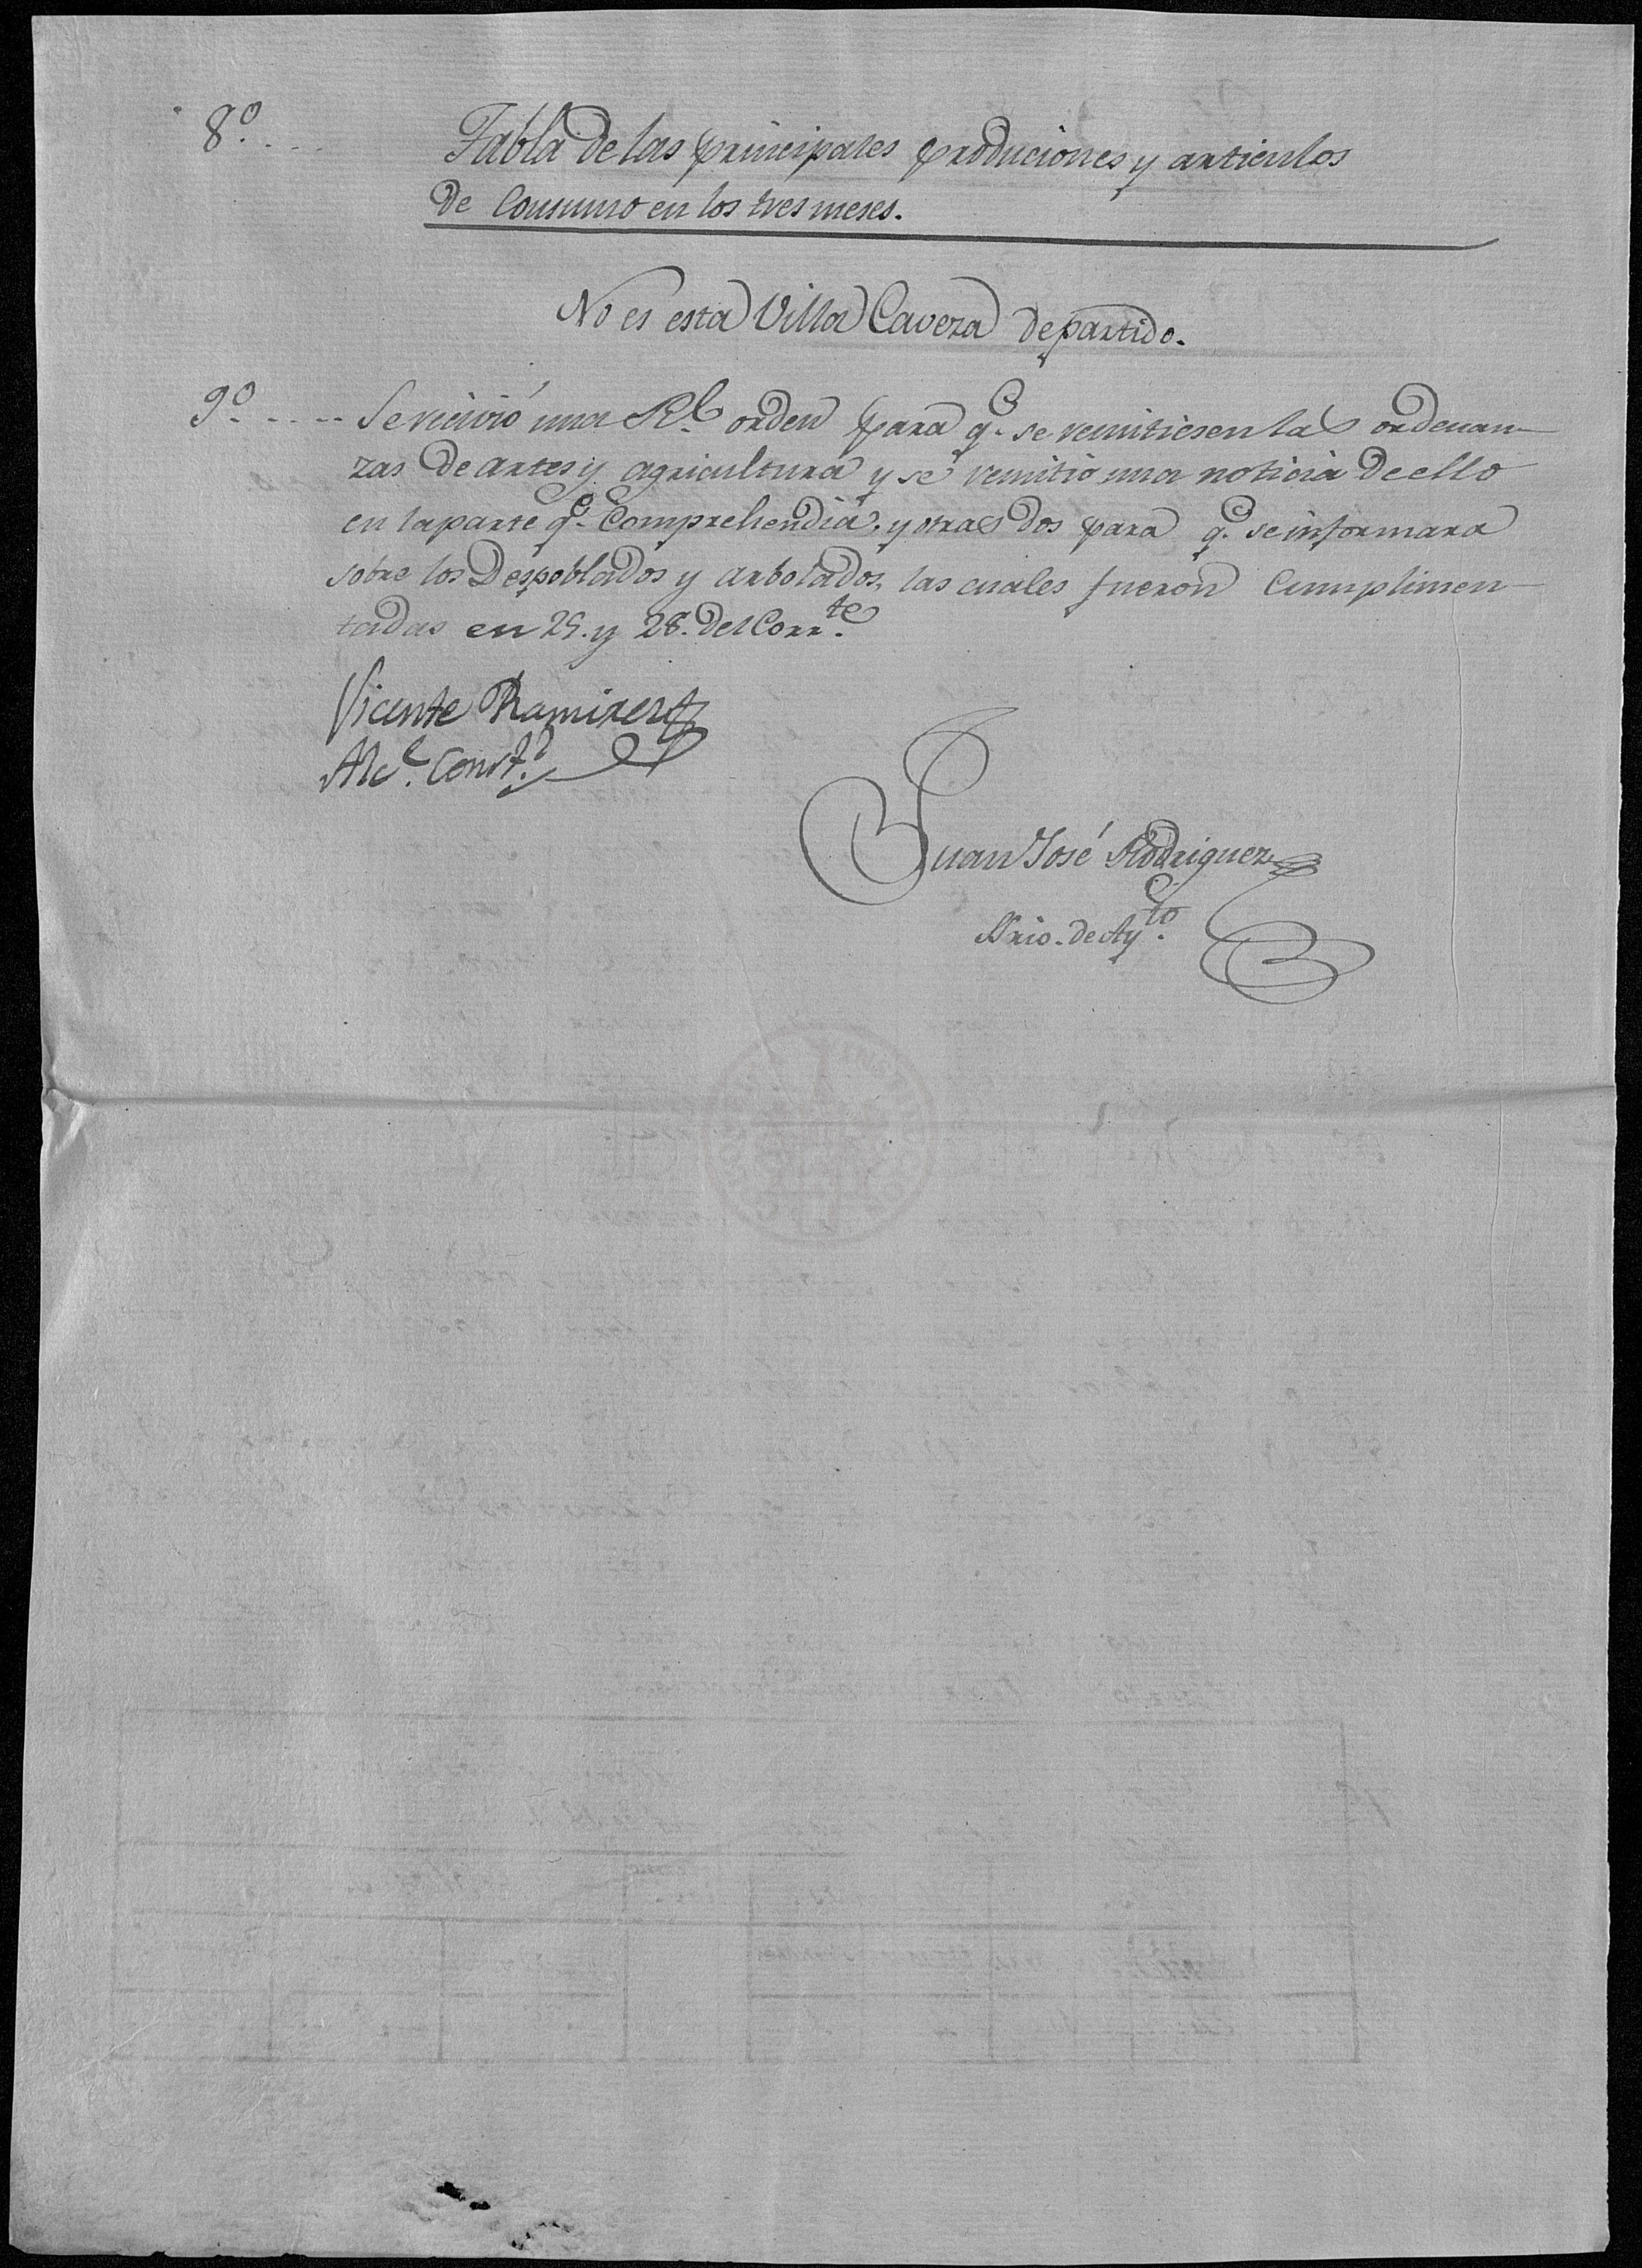 8º....
Tabla de las principales produciones y articulos
de Consumo en los tres meses.
No es esta Villa Caveza de partido.
9º..... Se recivió una Rl. orden para qe. se remitiesen las ordenan-
zas de artes y agricultura y se remitió una noticia de ello
en la parte qe. Comprehendia, y otras dos para qe. se informara
sobre los Despoblados y arbolados, las cuales fueron Cumplimen-
tadas en 25. y 28. del Corrte.
Vicente Ramirez
Alce. Constl.
Juan José Rodriguez
Srio. de Ayto.